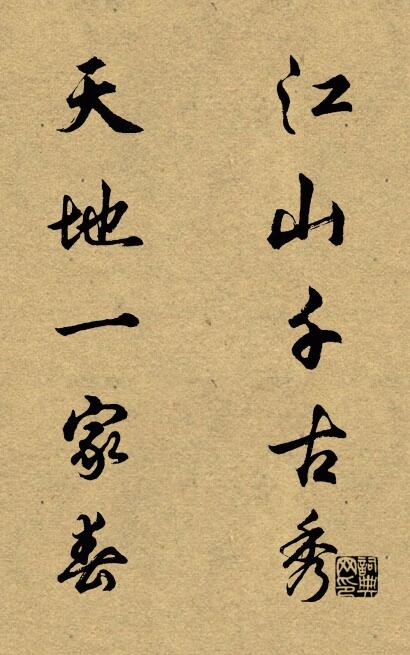 江山千古秀
天地一家春
詞典网印